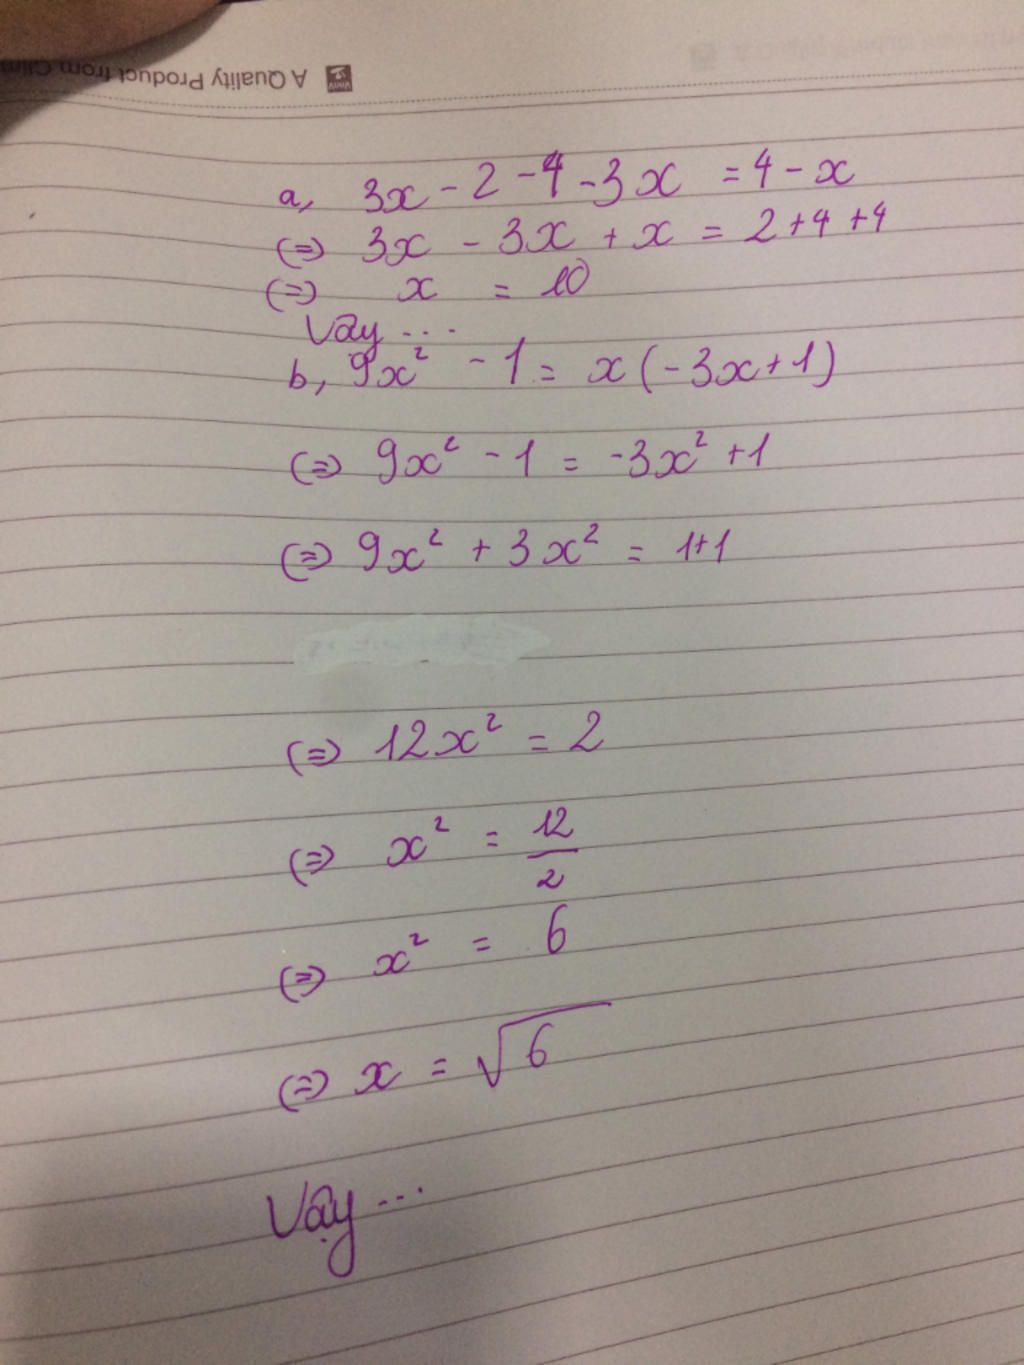 A Quality Product from
a, 3x - 2 - 4 - 3x = 4 - x
(=) 3x - 3x + x = 2 + 4 + 4
(=) x = 10
Vậy ...
b, 9x² - 1 = x(-3x + 1)
(=) 9x² - 1 = -3x² + 1
(=) 9x² + 3x² = 1+1
(=) 12x² = 2
(=) x² = 12/2
(=) x² = 6
(=) x = √6
Vậy ...